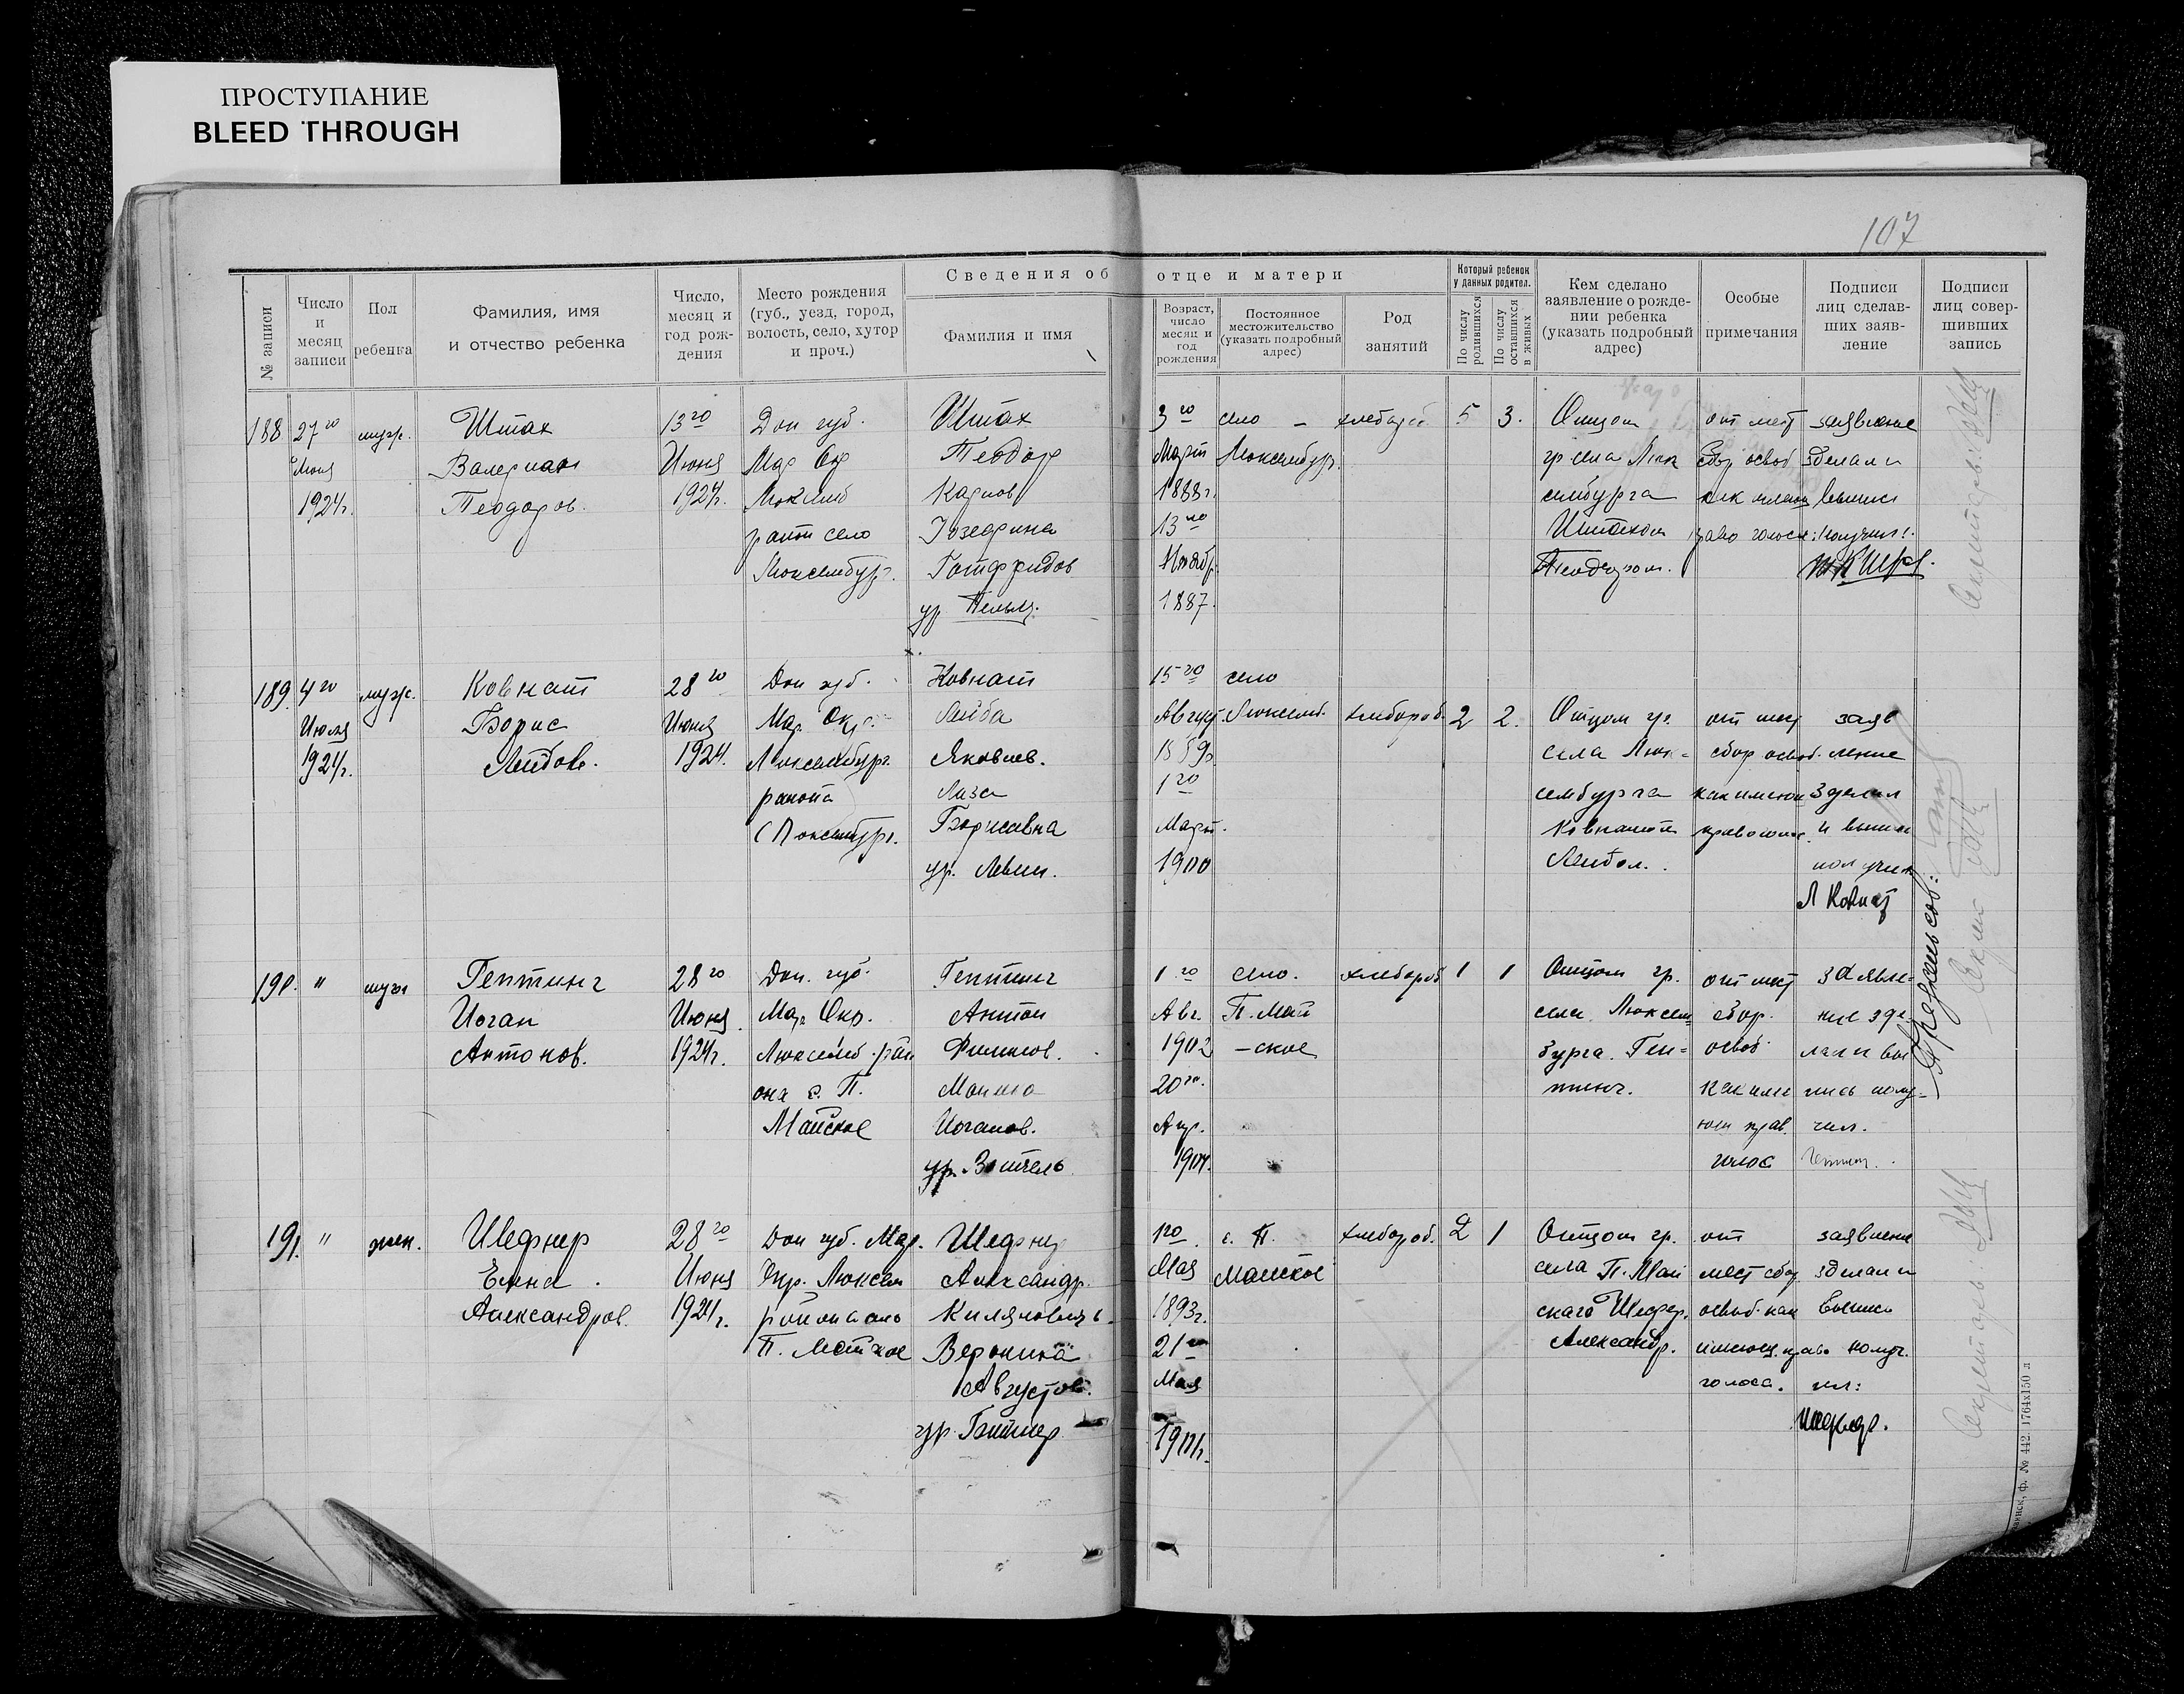 ПРОСТУПАНИЕ
BLEED THROUGH
107
Сведения об отце и матери
№ записи
Число и месяц записи
Пол ребенка
Фамилия, имя и отчество ребенка
Число, месяц и год рождения
Место рождения (губ., уезд, город, волость, село, хутор и проч.)
Фамилия и имя
Возраст, число месяц и год рождения
Постоянное местожительство (указать подробный адрес)
Род занятий
Который ребенок у данных родител.
По числу родившихся
По числу оставшихся в живых
Кем сделано заявление о рождении ребенка (указать подробный адрес)
Особые примечания
Подписи лиц сделавших заявление
Подписи лиц совершивших запись
188
27го
Июня
1924г.
муж.
Штах
Валериан
Теодоров.
13го
Июня
1924г.
Дон губ.
Мар Окр
Люксемб
село
Люксембург.
Штах
Теодор
Карлов
Готфридов
ур.
3го
Март
1888г.
13го
Ноябр
1887.
село
Люксембург.
хлебороб
5
3.
Отцом
гр села Люк
сембурга
Штахом
Теодором.
от мест
сбор освоб
право голоса
заявление
зделал и
выпись
получил
189.
4го
Июля
1924г.
муж.
Ковнат
Борис
Лейбов.
28го
Июня
1924.
Дон губ.
Мар. Окр.
Люксембург.
района
с Люксембург.
Ковнат
Лейба
Яковлев.
Лиза
Борисовна
ур. Левин.
15го
Август.
1го
Март.
1900
село
Люксемб.
хлебороб.
2
2.
Отцом гр.
села Люк-
сембурга
Ковнатом
Лейбом.
от мест
сбор освоб.
заяв
ление
зделал
и выпись
получил
Л Ковнат
190.
"
муж
Гептинг
Иоган
Антонов.
28го
Июня
1924г.
Дон. губ.
Мар. Окр.
Люксемб. рай
она с. П.
Майское
Гептинг
Антон
Филипов.
Иоганов.
ур.
1го
Авг.
1902
20го.
Апр.
1904.
село.
П. Май
-ское
хлебороб
1
1
Отцом гр.
села Люксем-
бурга. Геп-
тинг.
от мест
сбор.
освоб
как име
ющ прав.
голос
заявле-
ние зде-
лал и вы
пись полу-
чил.
191.
"
жен.
Шефнер
Елена
Александров.
28го
Июня
1924г.
Дон губ. Мар.
Окр. Люксем
района село
П. Майское
Шефнер
Александр.
Килянович
Вероника
Августов.
1го
Мая
1893г.
21го
Мая
с. П.
Майское
хлебороб.
2
1
Отцом гр.
села П. Май
скаго Шефнер.
Александр.
от
мест сбор
освоб. как
имеющ. право
голоса.
заявление
зделал и
выпись
получ.
ил:
Шефнер.
ф. № 442. 1764х150 л